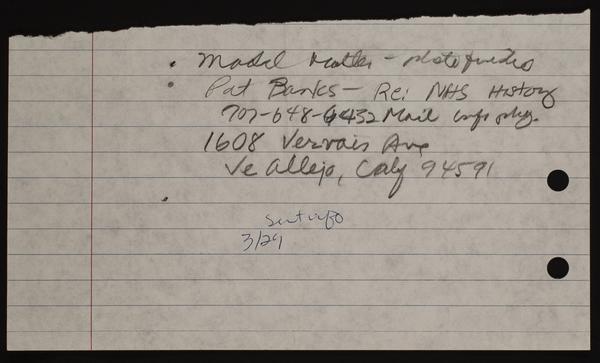 • Model Matter - 
• Pat Banks - Re: NHS History
707-648-6432 Mail info pkg.
1608 Vervais Ave
Vallejo, Calif 94591
•
Sent info
3/29